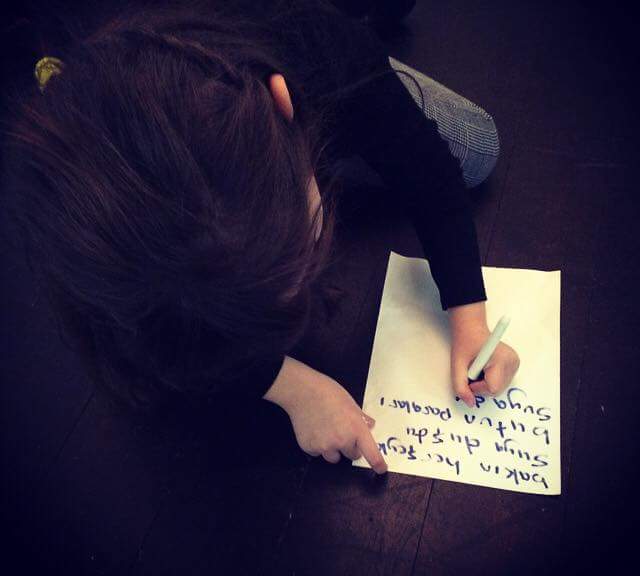 bakın herşey
suya duşdu
butun paraları
suya du